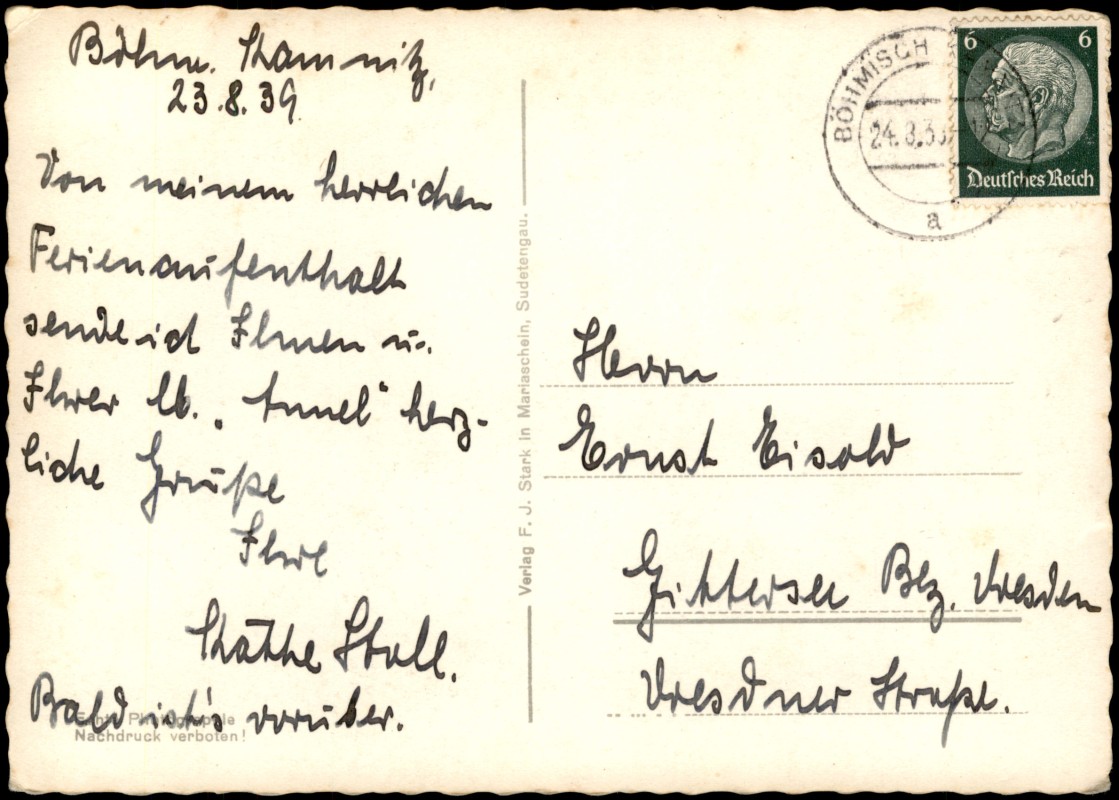 Böhm. Kamnitz,
23.8.39.
Von meinem herrlichen
Ferienaufenthalt
sende ich Ihnen u.
Ihrer lb. „Annel“ herz-
liche Grüße
Ihre
Käthe Stoll.
Bald ist's vorüber.
Echte Photographie
Nachdruck verboten!
Verlag F. J. Stark in Mariaschein, Sudetengau.
BÖHMISCH
24.8.39
a
6 6
Deutsches Reich
Herrn
Ernst Eisold
Gittersee Bez. Dresden
Dresdner Straße.